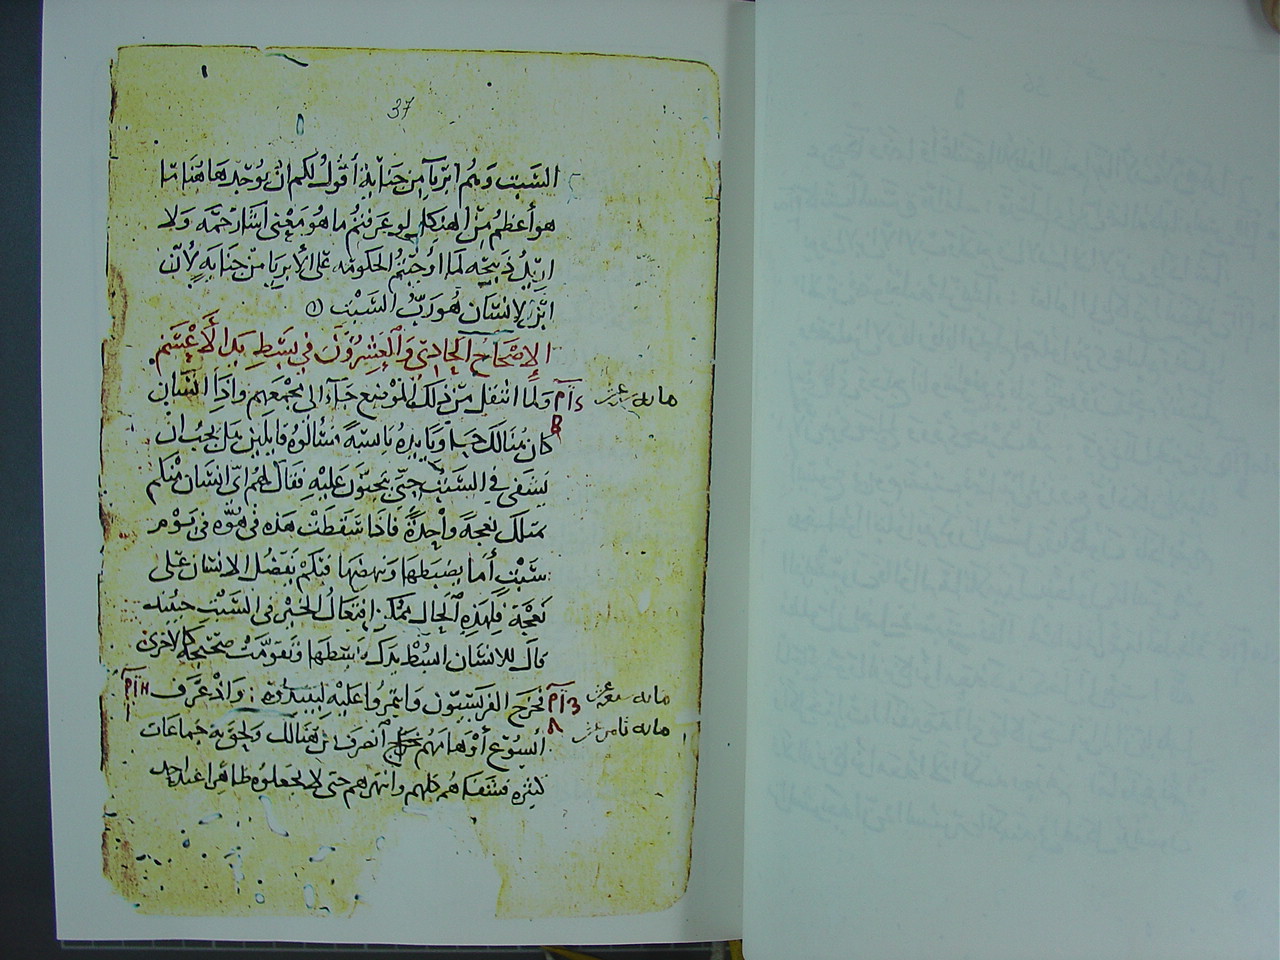 37
السَّبت وَهُم أبرِيآ مِن جَنايةٍ أقولُ لكم ان يُوجَد هَاهُنَا مَا
هو أعظمُ مِن الهيكل لو عَرفتُم ما هُو مَعْنى اشَا رَحمَه وَلا
ذبيحَه لمَا اوجَبتُم الحكومَه عَلى الأبرِيَا مِن جَنايه لأنّ
ابن الإنسَان هُو رَبُّ السَّبْت
الإصْحَاحُ الحَادي وَالعِشرُونَ في بَسْطِ يَدِ الأَعْسَم
وَلمّا انتقل مِن ذلك الموْضِع جَاءَ الى مجْمَعِهم وَاذَا انسَان
كان هُنالك وَيَدهُ يَابسَةً فسَألوهُ قايلين هَل يجبُ ان
يشفى في السَّبْت حتّى يتجنَّون عَليْهِ فقال لهم ايّ انسَان منكم
يمَلك نعجَةً وَاحِدةً فاذا سَقطَتْ هَذه في هُوّه في يَوْم
سَبْتٍ أمَا يضبطهَا وَينهضهَا فبكم يَفضلُ الانسَان عَلى
نعْجَة فلِهَذِهِ الحَال يمكن افتعَالُ الخيْر في السَّبْت حينيذ
قالَ للانسَان ابسُطْ يدك فبسَطها وَتقوّمَت صَحيْحَة كالاخرى
فخرَج الفريسِيّون وَايتمرُوا عَليْهِ ليبيدُوه وَاذ عَرَف
ايسُوع أوْهَامَهُم انصرَف من هُنالك وَلحق به جماعَات
كثيره فشفاهُم كلهم وَانتهرهم حتى لا يجعلوه ظاهِرا عند احد
مايه
مايه
مايه ثامن عشر